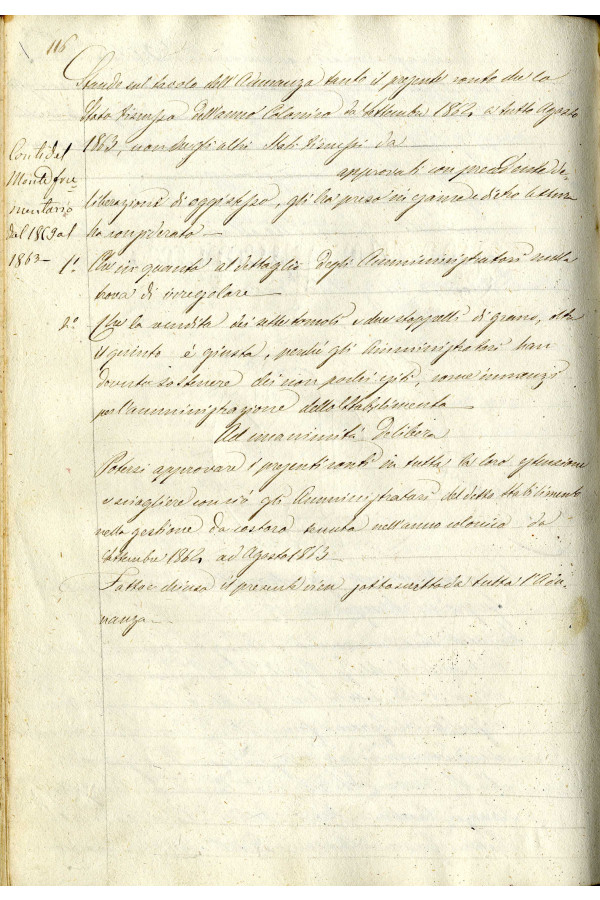 116
Stando sul tavolo dell'Adunanza tanto il presente conto che lo
Stato discusso dell'anno Colonico da Settembre 1862 a tutto Agosto
1863, non che gli altri Stati discussi da
approvati con precedente de-
liberazione di oggi stesso, gli ha preso in esame e dietro lettura
ha considerato
Conti del
Monte fru=
mentario
dal 1862 al
1863 -
1.° Che in quanto al dettaglio degli Amministratori nulla
trova di irregolare
2.° Che la vendita dei sette tomoli e due stoppelli di grano,
è giusta, perché gli Amministratori han
dovuto sostenere dei non pochi esiti, come
per l'amministrazione dello Stabilimento
Ad unanimità Delibera
Potersi approvare i presenti conti in tutta la loro estensione
e sciogliere con ciò gli Amministratori del detto Stabilimento
nella gestione da costoro tenuta nell'anno colonico da
Settembre 1862 ad Agosto 1863
Fatto e chiuso il presente vien sottoscritto da tutta l'Adu-
nanza -